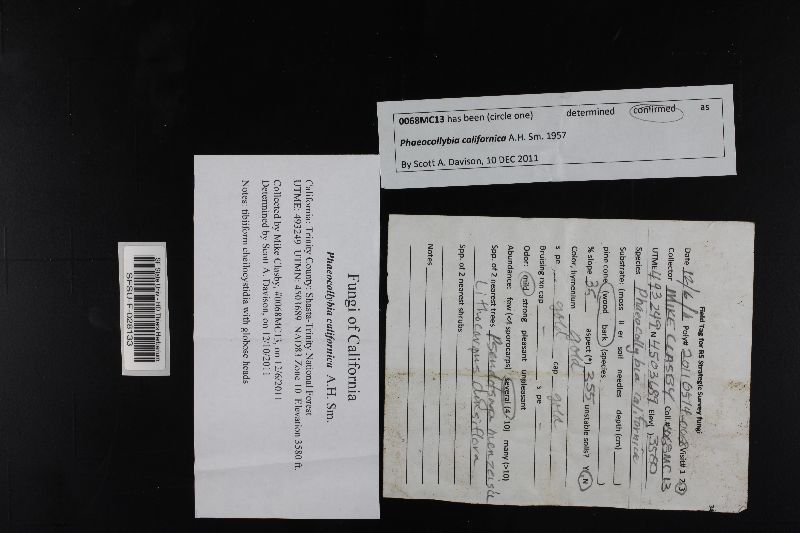 0068MC13 has been (circle one) determined confirmed as
Phaeocollybia californica A.H. Sm. 1957
By Scott A. Davison, 10 DEC 2011
Fungi of California
Phaeocollybia californica A.H. Sm.
California: Trinity County: Shasta-Trinity National Forest
UTME: 493249 UTMN: 4503689 NAD83 Zone 10 Elevation 3580 ft.
Collected by Mike Classby, #0068MC13, on 12/6/2011
Determined by Scott A. Davison, on 12/10/2011
Notes: tibiiform cheilocystidia with globose heads
SF State Univ - HD Thiers Herbarium
SFSU-F-028133
Field Tag for R5 Strategic Survey fungi
Date 12/6/11 Poly# 20110514-0068 Visit# 1 2 3
Collector MIKE CLASSBY Coll.# 0068MC13
UTM E 493249 N 4503689 Elev. 3580
Species Phaeocollybia californica
Substrate: (moss litter soil needles depth (cm)
pine cone) (wood bark) (species )
% slope 35 aspect (°) 355 unstable soils? Y N
Color: hymenium gold
stipe gold cap gold
Bruising rxn cap stipe
Odor: mild strong pleasant unpleasant
Abundance: few (<4 sporocarps) several (4-10) many (>10)
Spp. of 2 nearest trees Pseudotsuga menzeisii
Lithocarpus densiflora
Spp. of 2 nearest shrubs
Notes